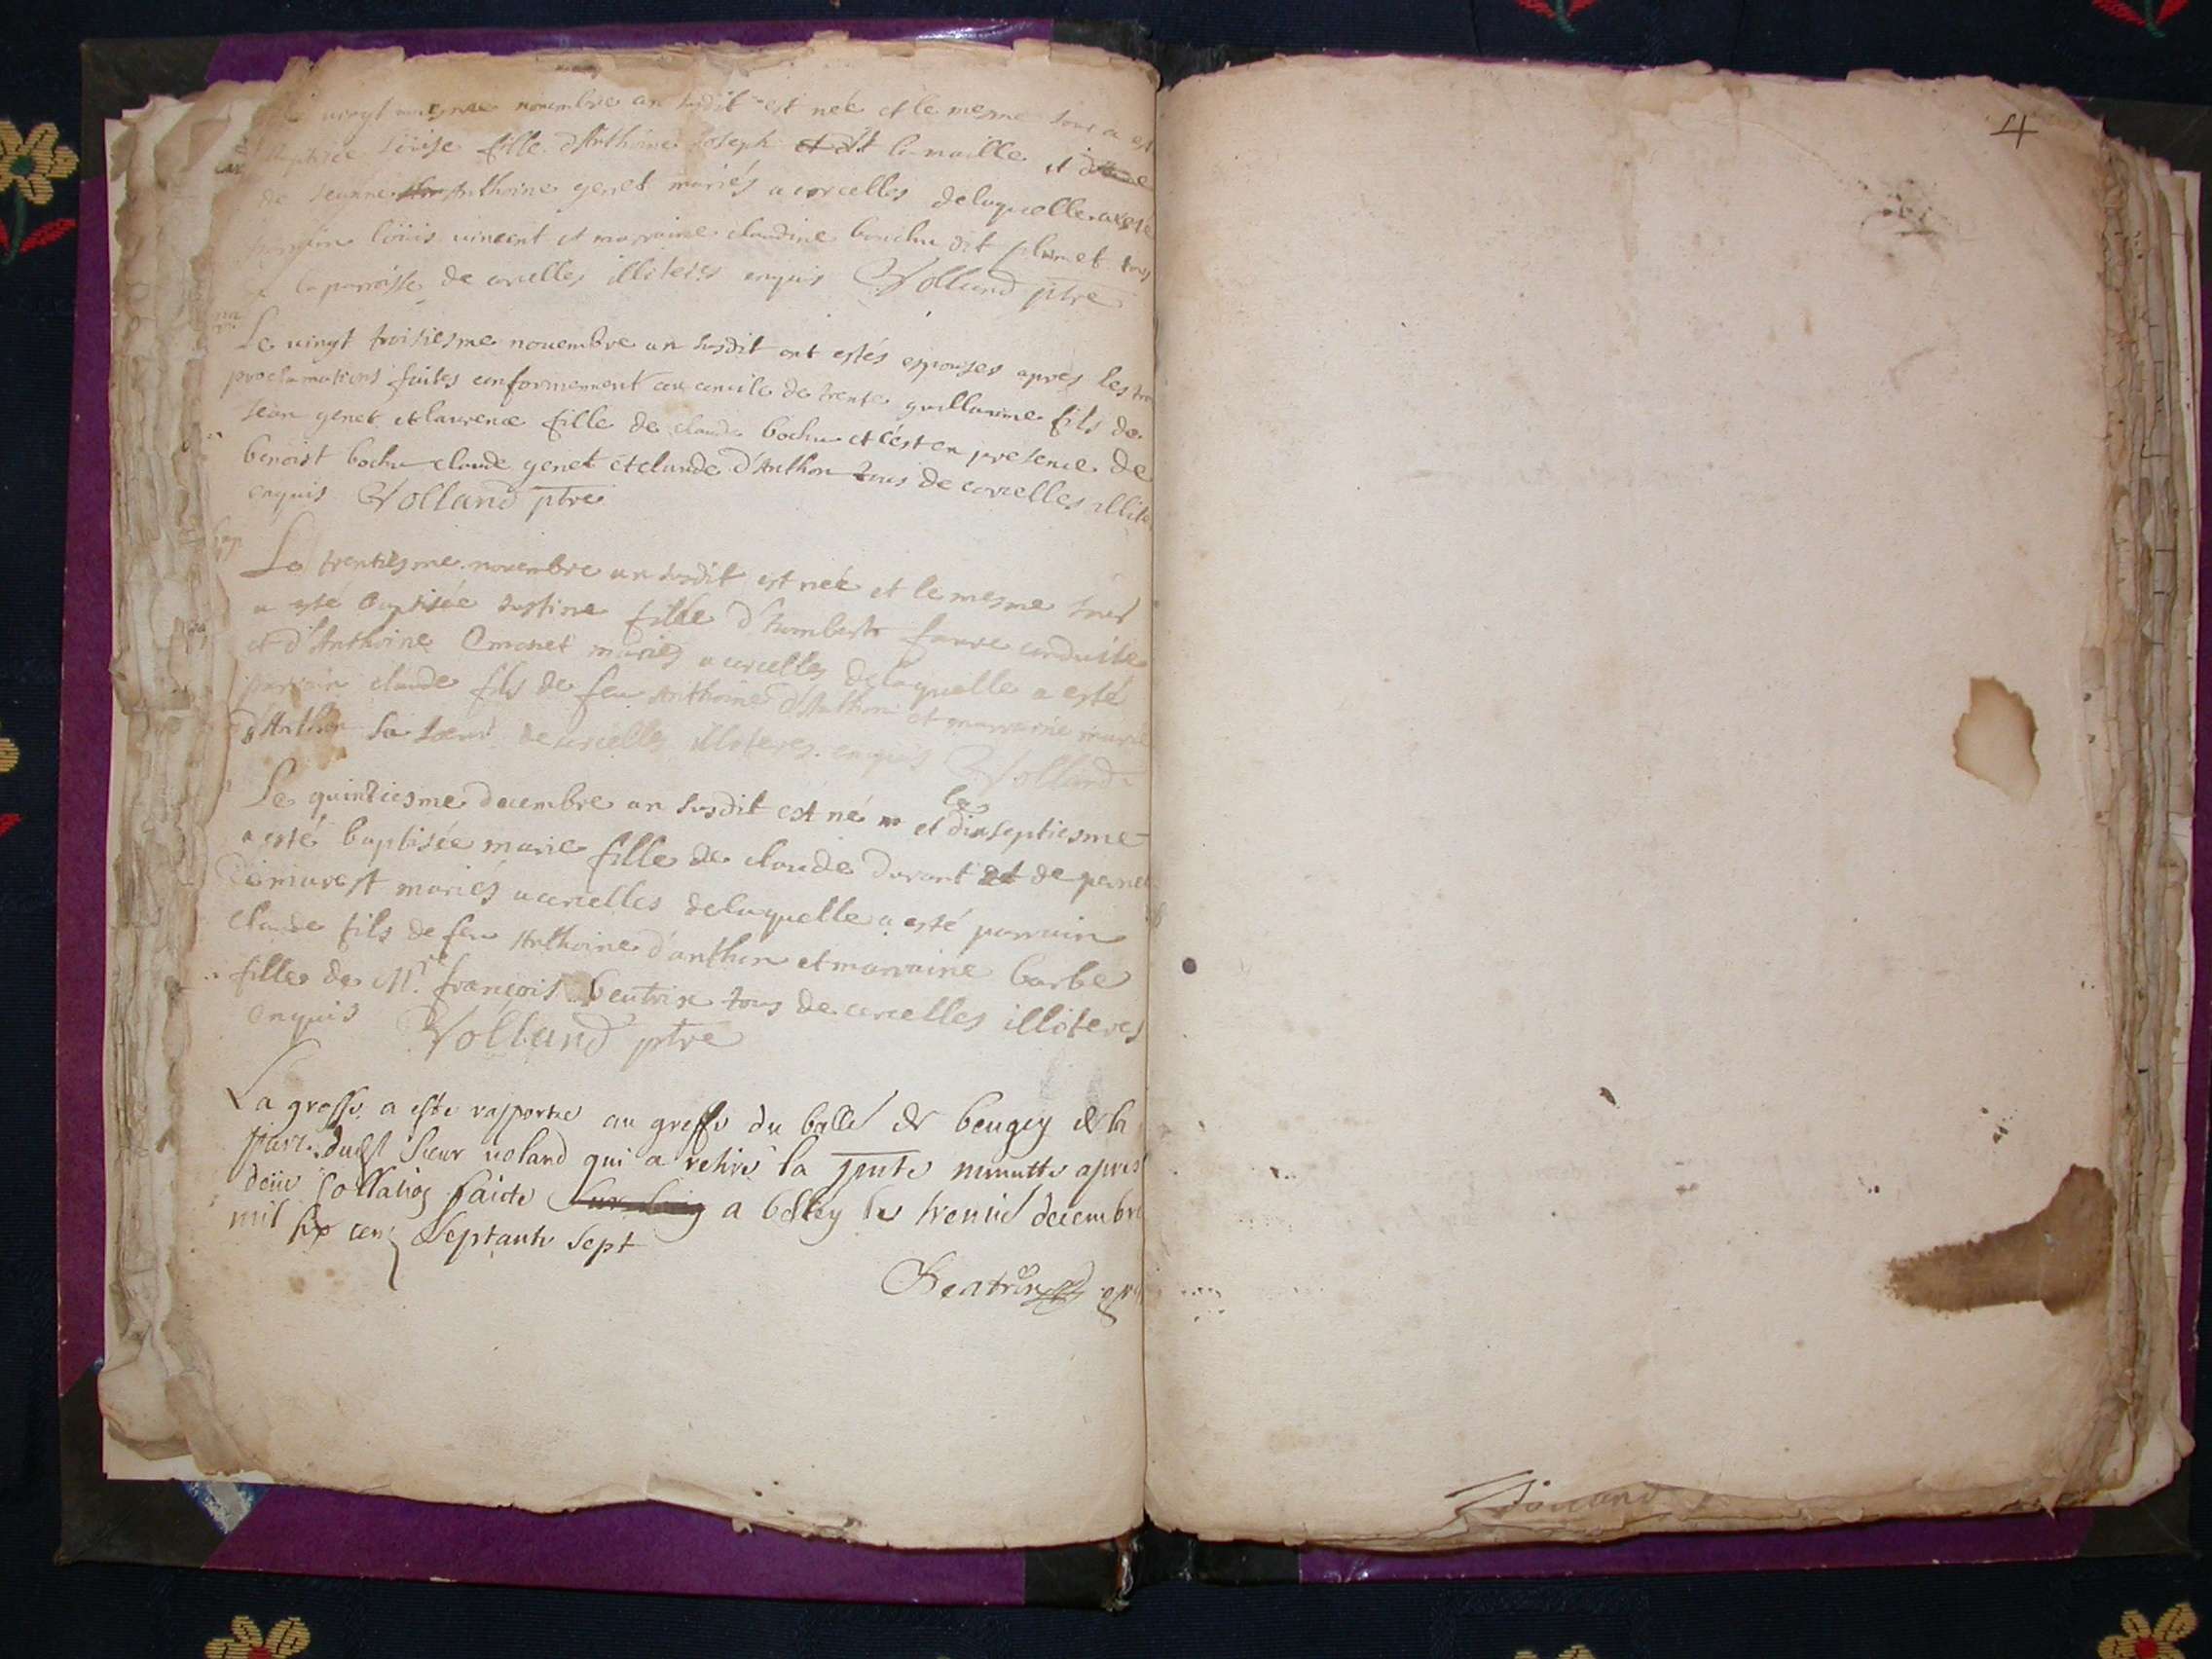 vingt novembre an susdit est née et le mesme jour a est
Loüise fille d'Anthoine Joseph et dit la maille et
de Jeanne Anthoine genet mariés a corcelles de laquelle a esté
loüis vincent et marraine claudine bochu dit plumet tous
la parroisse de corcelles illiteres enquis Volland ptre
Le vingt troisiesme novembre an susdit ont estés espouses apres les tro
proclamations faites conformement au concile de trente guillaume fils de
Jean genet et laurence fille de claude bochu et c'est en presence de
benoist bochu claude genet et claude d'Anthon tous de corcelles illite
enquis Volland ptre
bap
Le trentiesme novembre an susdit est née et le mesme jour
a esté baptisée Justine fille d'humbert faure
et d'Anthoine Emonet mariés a corcelles de laquelle a esté
parrain claude fils de feu Anthoine d'Anthon et marraine marie
d'Anthon sa soeur de corcelles illiteres enquis Volland
Le quinziesme decembre an susdit est né et le dixseptiesme
a esté baptisée marie fille de claude Durant et de perne
mariés a corcelles de laquelle a esté parrain
claude fils de feu Anthoine d'anthon et marraine barbe
fille de Mr. françois beatrix tous de corcelles illiteres
enquis Volland ptre
La grosse a esté rapportée au greffe du balle de beugey de la
part dudt Sieur voland qui a retiré la pnte minutte apres
deüe collation faicte a belley le trente decembre
mil six cens septante sept
Beatrix
4